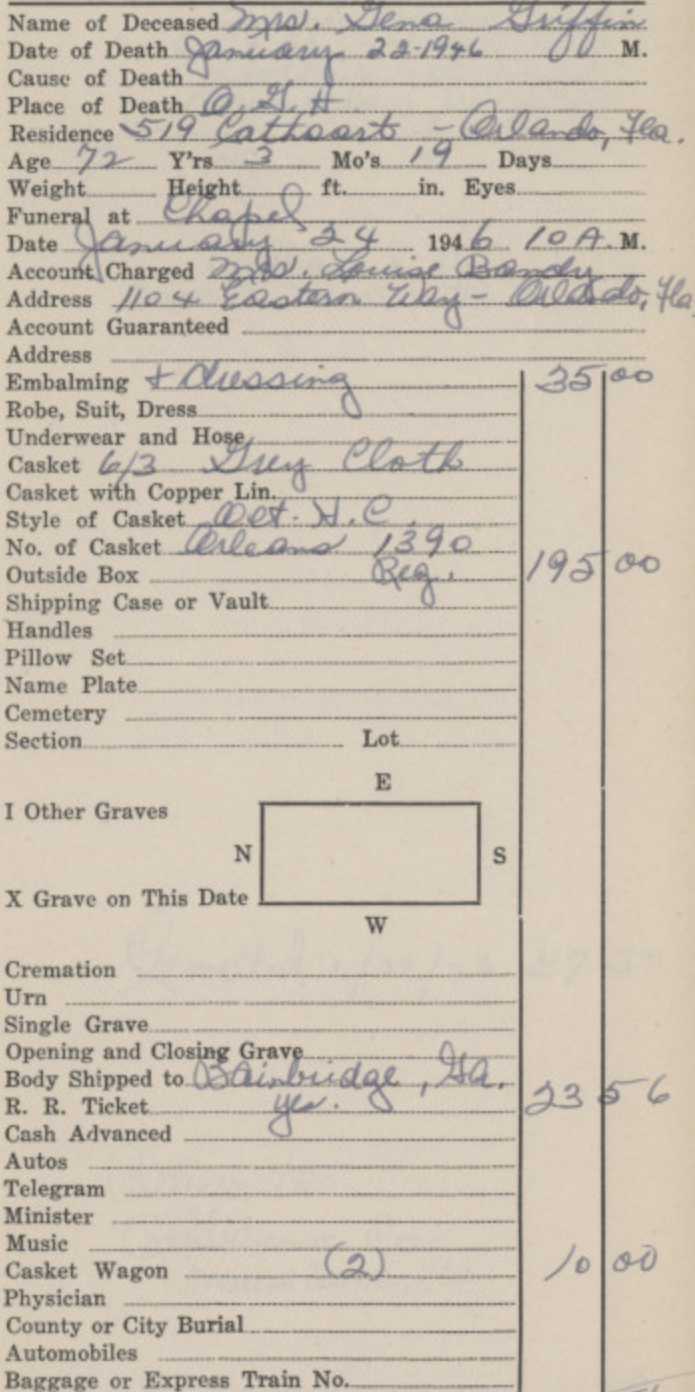 Name of Deceased Mrs. Gena Griffin
Date of Death January 22-1946 M.
Cause of Death
Place of Death O.G.H
Residence 519 Cathcart - Orlando, Fla.
Age 72 Y'rs 3 Mo's 19 Days
Weight Height ft. in. Eyes
Funeral at Chapel
Date January 24 1946 10 A. M.
Account Charged Mrs. Louise Bandy
Address 1104 Eastern Way - Orlando, Fla
Account Guaranteed
Address
Embalming + dressing 35 00
Robe, Suit, Dress
Underwear and Hose
Casket 6/3 Grey Cloth
Casket with Copper Lin.
Style of Casket Oct. H.C.
No. of Casket Orleans 1390
Outside Box Reg. 195 00
Shipping Case or Vault
Handles
Pillow Set
Name Plate
Cemetery
Section Lot
E
I Other Graves
N S
X Grave on This Date
W
Cremation
Urn
Single Grave
Opening and Closing Grave
Body Shipped to Bainbridge, Ga.
R. R. Ticket yes. 23 56
Cash Advanced
Autos
Telegram
Minister
Music
Casket Wagon (2) 10 00
Physician
County or City Burial
Automobiles
Baggage or Express Train No.